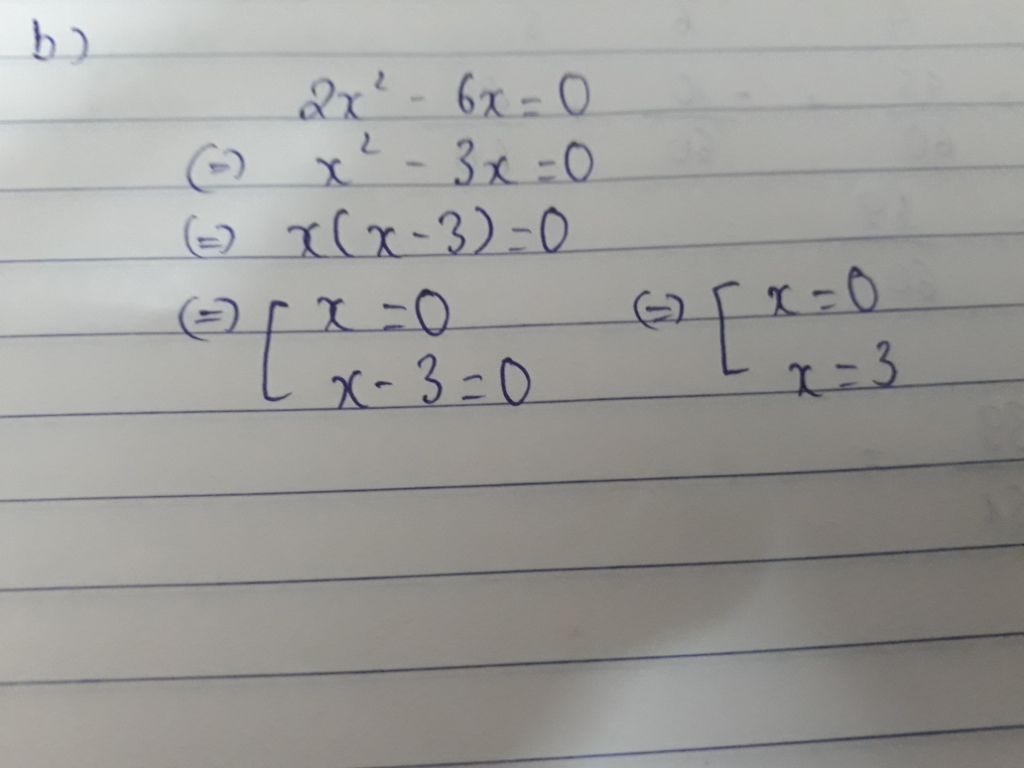 b)
2x² - 6x = 0
(=) x² - 3x = 0
(=) x(x - 3) = 0
(=) [ x = 0 (=) [ x = 0
x - 3 = 0 x = 3